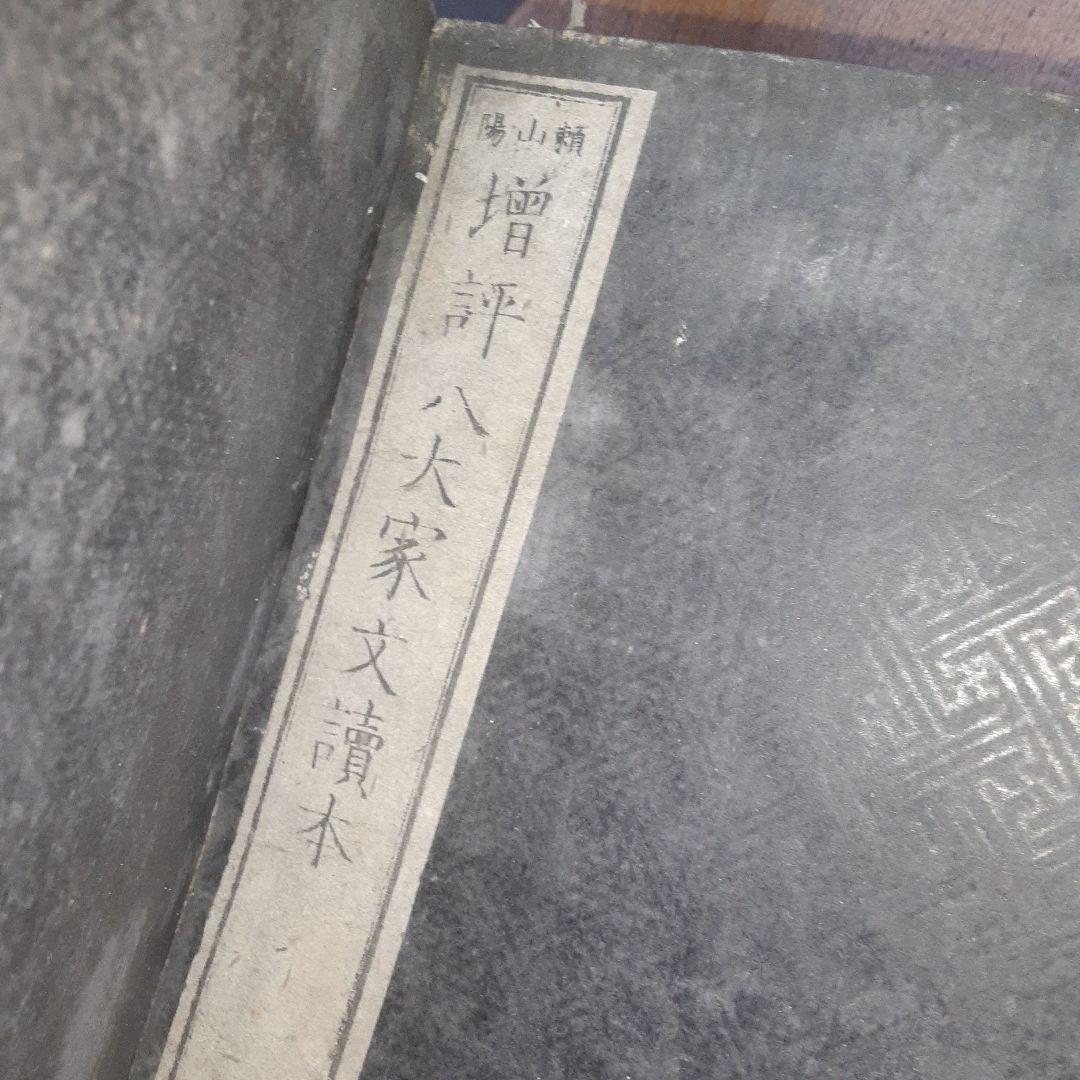 頼山陽
增評八大家文讀本